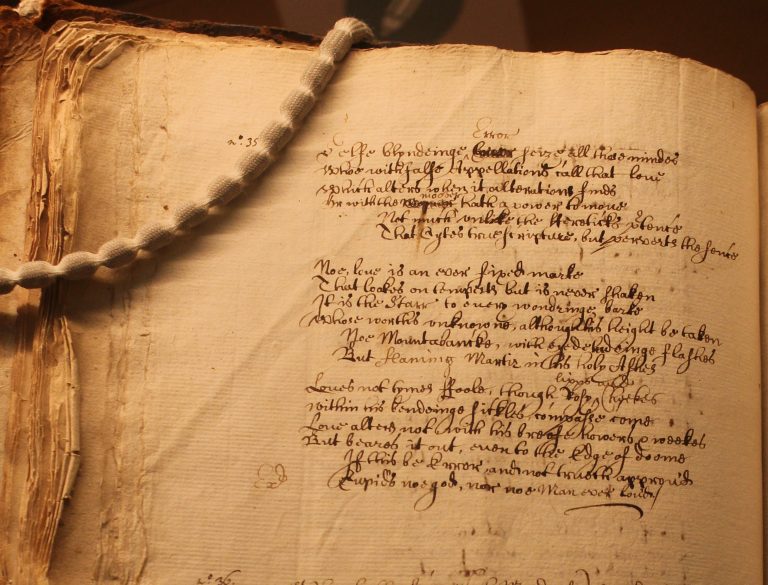 n.º 35
Error
Selfe blyndeinge seize all those mindes
Whoe with false Appellations call that love
Which alters when it alterations finds
moover
Or with the hath a power to move
Not much unlike the Hereticks ptence
That Cytes true scripture, but perverts the sence
Noe, love is an ever fixed marke
That lookes on tempests but is never shaken
It is the Starr to every wandringe barke
Whose worths unknowne, although his height be taken
Noe Mountabancke, with eye deludeinge flashes
But flameing Martir in his holy Ashes
lippes and
Loves not tymes ffoole, though Rosy Cheekes
Within his bendeinge sickles compasse come
Love alters not with his breife howers & weekes
But beares it out, even to the Edge of doome
Exd
If this be Error and not trueth approvd
Cupids noe god, nor noe Man ever loved
n.º 36.